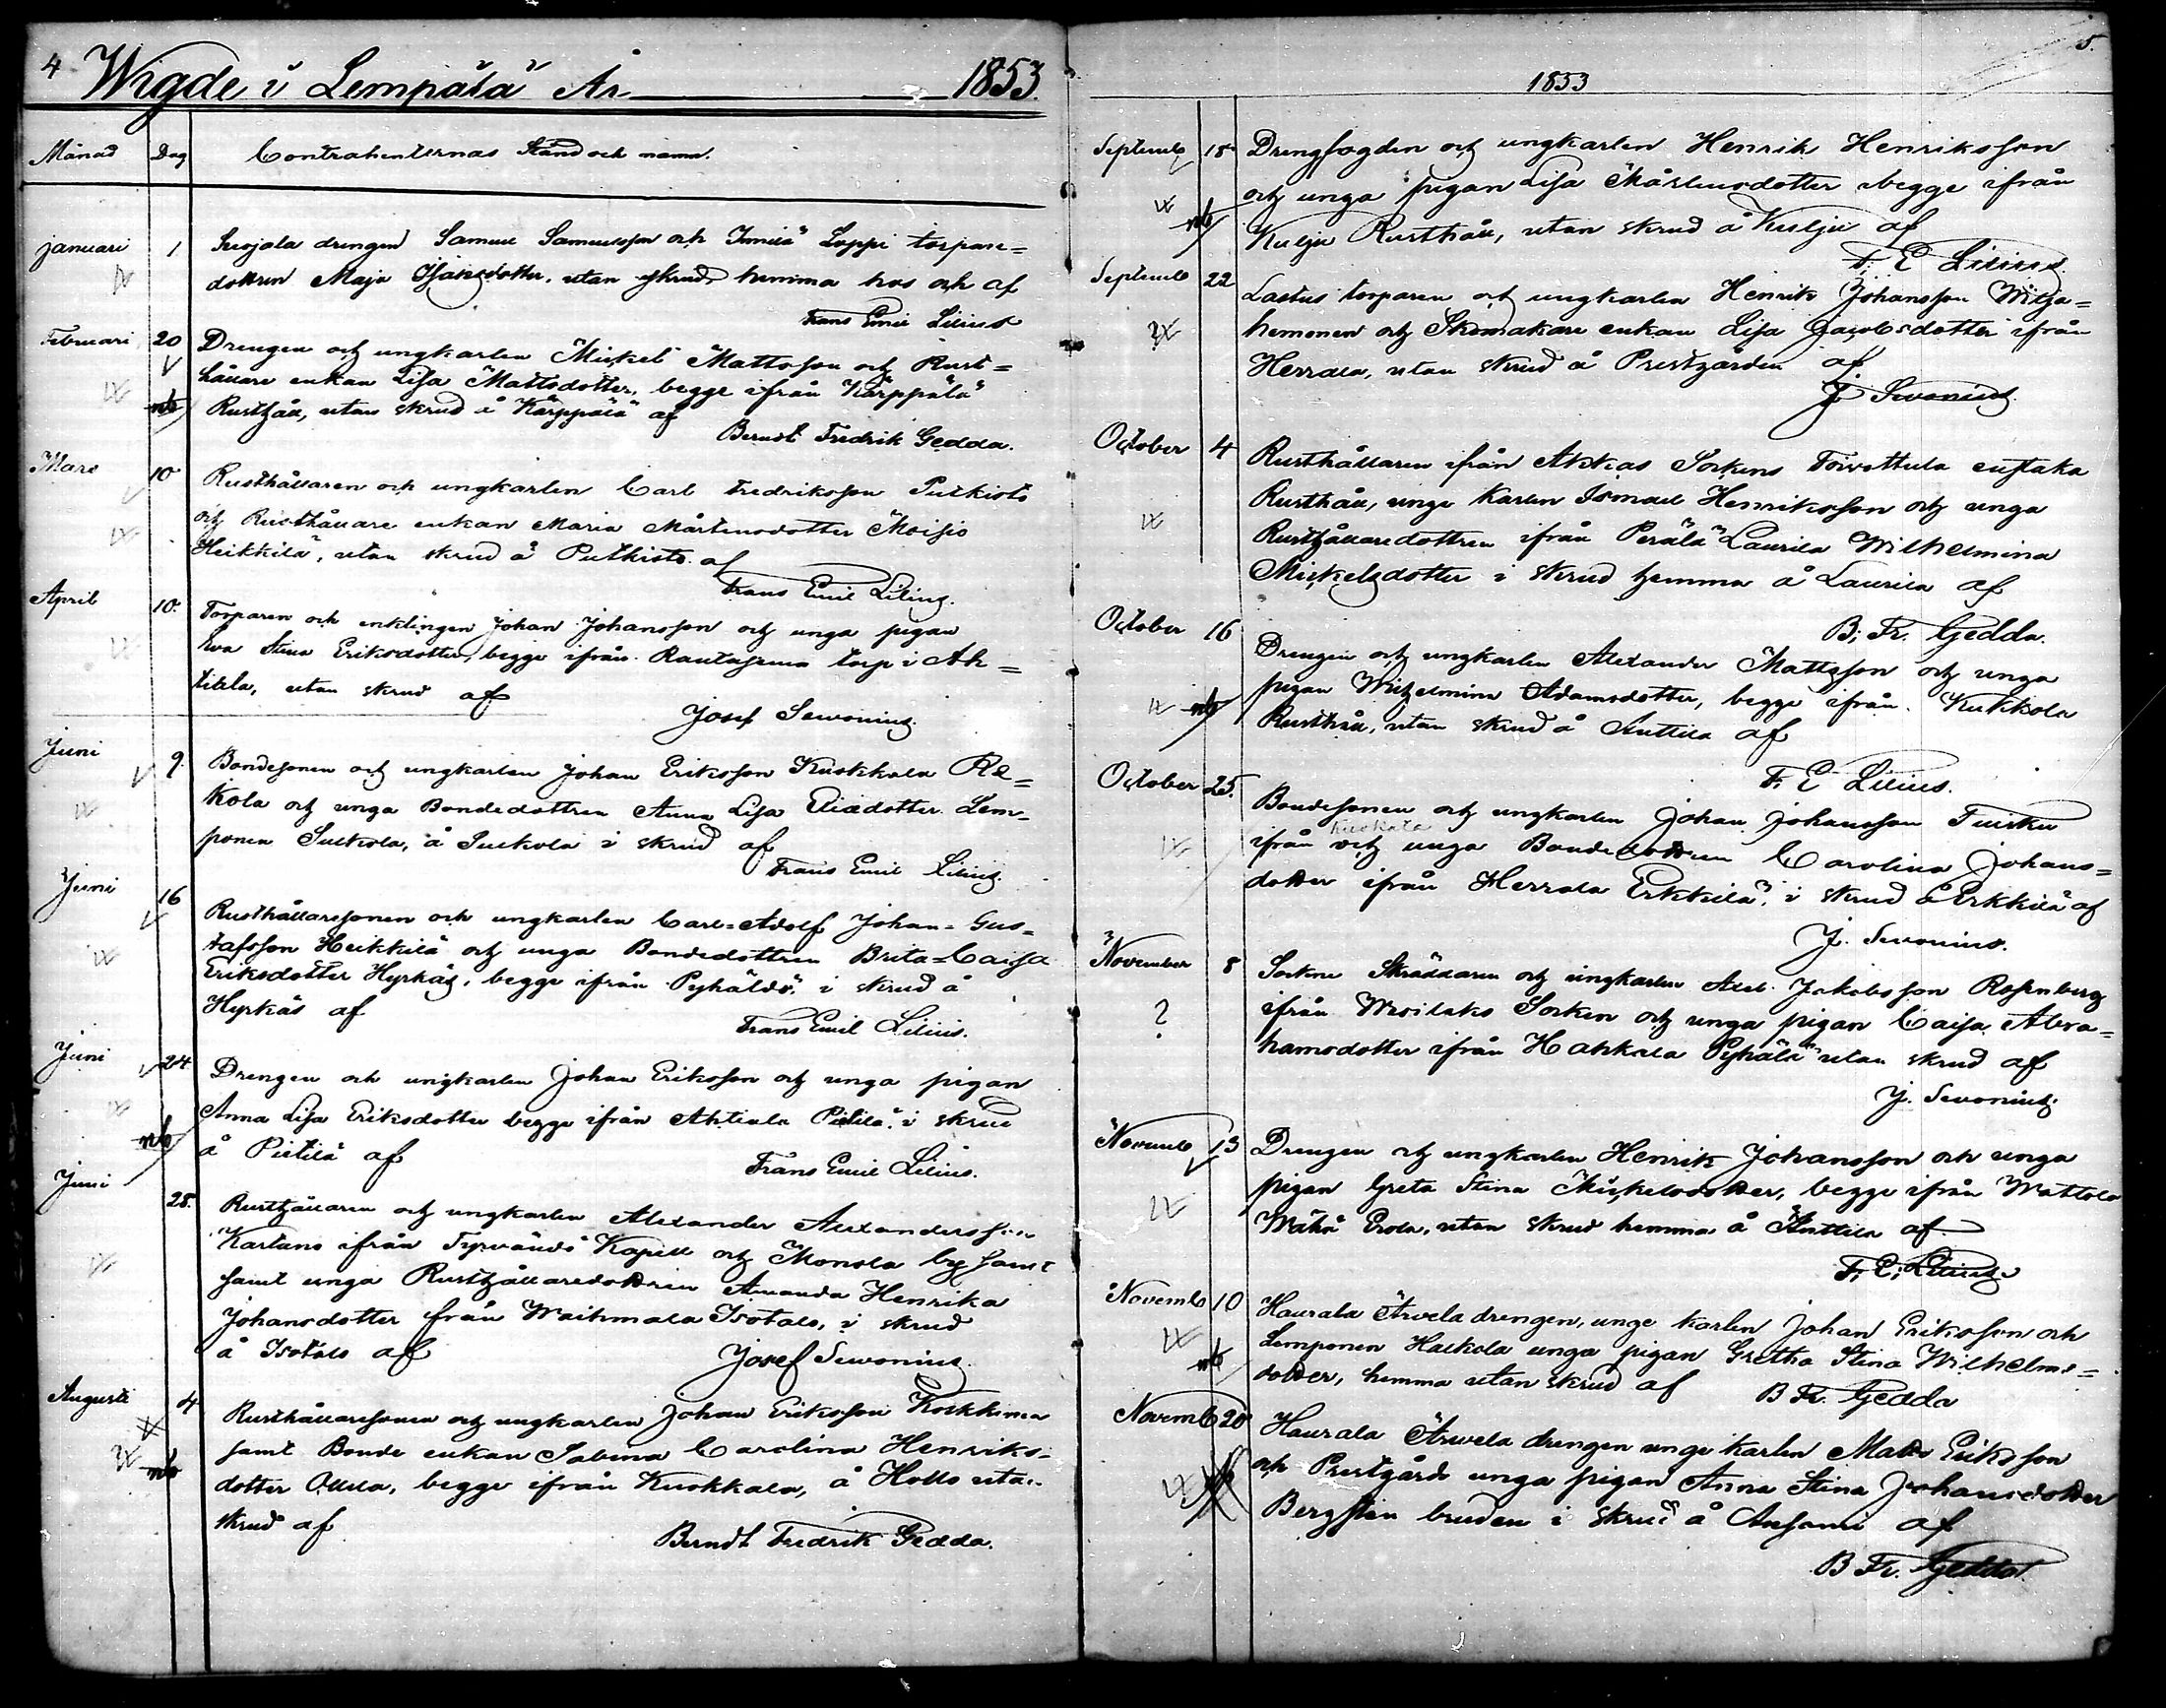 4 Wigde i Lempälä År 1853.
Månad Dag Contrahenternas Stånd och namn.
januari 1 drengen Samuel Samuelsson och Innilä Loppi torpare=
dottren Maja Isaksdotter, utan skrud hemma hos och af
Frans Emil Lilius
Februari 20 Drengen och ungkarlen Mickel Mattsson och Rust=
hållare enkan Lisa Mattsdotter, begge ifrån Kärppälä
nb Rusthåll, utan skrud å Kärppälä af
Berndt Fredrik Gedda.
Mars 10 Rusthållaren och ungkarlen Carl Fredriksson Putkisto
och Rusthållare enkan Maria Mårtensdotter Moisio
Heikkilä, utan skrud å Putkisto af
Frans Emil Lilius.
April 10. Torparen och enklingen Johan Johansson och unga pigan
Eva Stina Eriksdotter, begge ifrån torp i Ah=
tiala, utan skrud af
Josef Sewonius.
Juni 9. Bondesonen och ungkarlen Johan Eriksson Kuokkala Re=
kola och unga Bondedottren Anna Lisa Eliædotter Lem=
ponen Suckola, å Suckola i skrud af
Frans Emil Lilius.
Juni 16 Rusthållaresonen och ungkarlen Carl=Adolf Johan=Gus=
tafsson Heikkilä och unga Bondedottren Brita=Caisa
Eriksdotter Hyrkäs, begge ifrån Pyhältö, i skrud å
Hyrkäs af
Frans Emil Lilius.
Juni 24 Drengen och ungkarlen Johan Eriksson och unga pigan
Anna Lisa Eriksdotter begge ifrån Ahtiala Pietilä, i skrud
nb å Pietilä af
Frans Emil Lilius.
Juni 28. Rusthållaren och ungkarlen Alexander Alexandersson
Kartano ifrån Tyrvändö Kapell och Monola by samt
samt unga Rusthållaredottren Amanda Henrika
Johansdotter från Waihmala Isotalo, i skrud
å Isotalo af
Josef Sewonius.
Augusti 4 Rusthållaresonen och ungkarlen Johan Eriksson Koskkinen
samt Bonde enkan Sabina Carolina Henriks=
nb dotter Ollila, begge ifrån Kuokkala, å Hollo utan
skrud af
Berndt Fredrik Gedda.
5.
1853
Septemb 18 Drengfogden och ungkarlen Henrik Henriksson
och unga pigan Lisa Mårtensdotter begge ifrån
nb Kulju Rusthåll, utan skrud å Kulju af
F. E Lilius.
Septemb 22 Lastus torparen och ungkarlen Henrik Johansson Wilja=
hemonen och Skomakare enkan Lisa Jacobsdotter ifrån
Herrala, utan skrud å Prestgården af
J. Sewonius.
October 4 Rusthållaren ifrån Akkas Sockens Toivottula
Rusthåll, unge karlen Ismael Henriksson och unga
Rusthållaredottren ifrån Perälä Laurila Wilhelmina
Mickelsdotter i skrud hemma å Laurila af
B: Fr. Gedda.
October 16 Drengen och ungkarlen Alexander Mattsson och unga
pigan Wilhelmina Adamsdotter, begge ifrån Kukkola
nb Rusthåll, utan skrud å Anttila af
F. E Lilius.
October 25. Bondesonen och ungkarlen Johan Johansson Tuisku
Kuokala
ifrån och unga Bondedottren Carolina Johans=
dotter ifrån Herrala Erkkilä, i skrud å Erkkilä af
J. Sewonius.
November 8 Sockne Skräddaren och ungkarlen Axel Jakobsson Rosenberg
? ifrån Wesilaks Socken och unga pigan Caisa Abra=
hamsdotter ifrån Hakkila Pyhältö utan skrud af
J. Sewonius.
Novemb 13 Drengen och ungkarlen Henrik Johansson och unga
pigan Greta Stina Mickelsdotter, begge ifrån Mattola
Wähä Erola, utan skrud hemma å Anttila af
F. E: Lilius.
Novemb 10 Haurala Arvela drengen, unge karlen Johan Eriksson och
Lemponen Haikola unga pigan Gretha Stina Wilhelms=
nb dotter, hemma utan skrud af B Fr. Gedda
Novemb 20 Haurala Arvela drengen unge karlen Matts Eriksson
och Prestgårds unga pigan Anna Stina Johansdotter
nb Bergsten bruden i skrud å Ansomi af
B Fr. Gedda